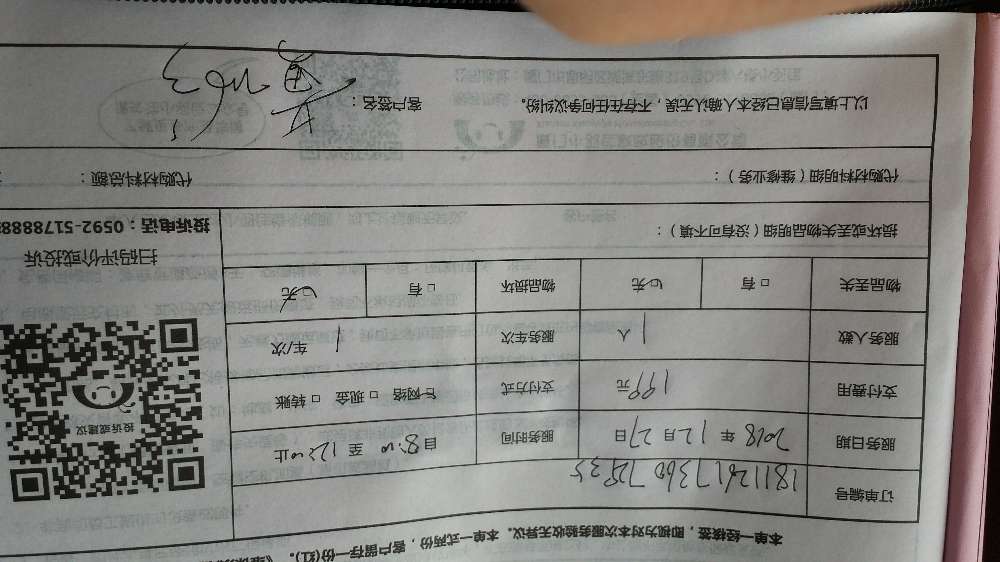 本单一经核签，即视为对本次服务验收无异议。本单一式两份，客户留存一份(红)。
订单编号 1811261736072535
服务日期 2018 年 12 月 27 日 服务时间 自 8:00 至 12:00 止
支付费用 199 元 支付方式 网络 □ 现金 □ 转账
服务人数 1 人 服务车次 1 车/次
物品丢失 □ 有 无 物品损坏 □ 有 无
投诉或建议
扫码评价或投诉
投诉电话：0592-5178888
损坏或丢失物品明细（没有可不填）：
代购材料明细（维修业务）： 代购材料总额：
以上填写信息已经本人确认无误，不存在任何争议纠纷。 客户签名：